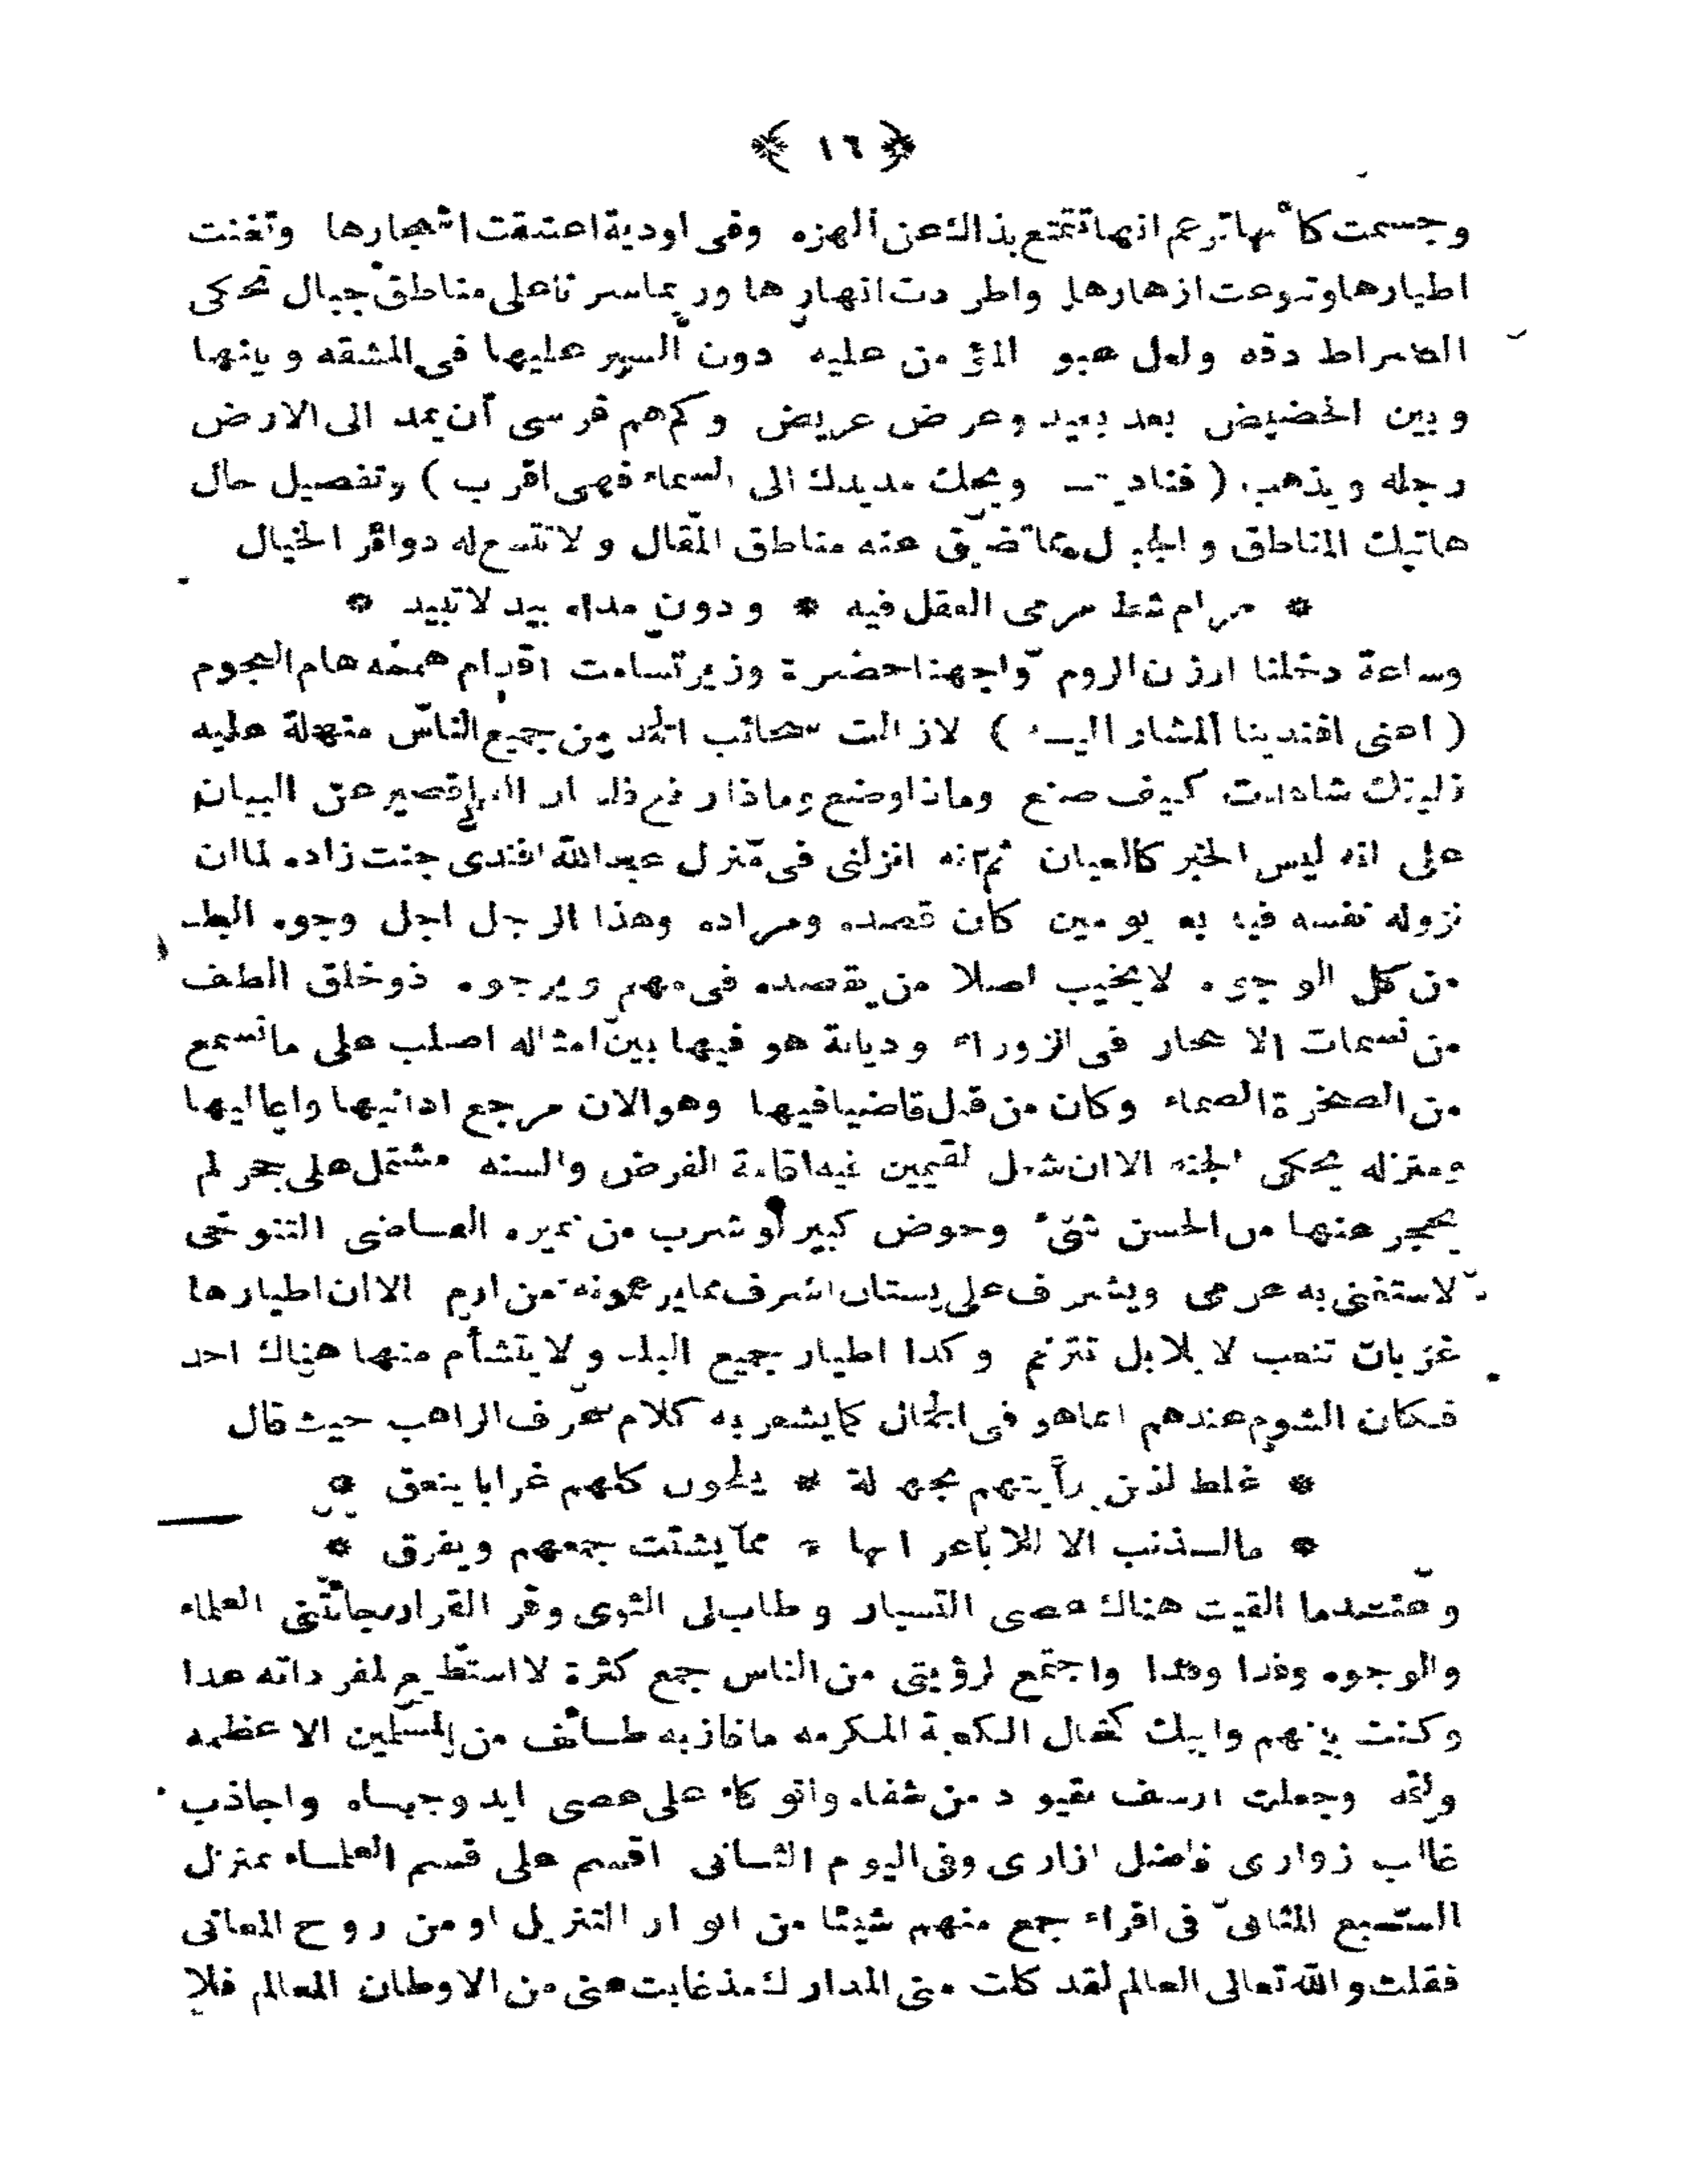 ﴿ ١٦ ﴾
وجسمت كأنها تزعم انها تمتنع بذالك عن الهزه وفى اودية اعتنقت اشجارها وتغنت
اطيارها وتنوعت ازهارها واطردت انهارها وربما سرنا على مناطق جبال تحكى
الصراط دقه ولعل عبو المؤمن عليه دون السير عليها فى المشقه وبينها
وبين الحضيض بعد بعيد وعرض عريض وكم هم فرسى أن يمد الى الارض
رجله ويذهب (فناديت ويحك مد يدك الى السماء فهى اقرب) وتفصيل حال
هاتيك المناطق والجبال مما تضيق عنه مناطق المقال ولا تتسع له دوائر الخيال
* مرام شط مرمى العقل فيه * ودون مداه بيد لا تبيد *
وساعة دخلنا ارزن الروم واجهنا حضرة وزير تسامت اقدام هممه هام النجوم
(اعنى افندينا المشار اليه) لازالت سحائب الحمد من جميع الناس منهلة عليه
فليتك شاهدت كيف صنع وماذا وضع وماذا رفع قصير عن البيان
على انه ليس الخبر كالعيان ثم انه انزلنى فى منزل عبد الله افندى جنت زاده لما ان
نزوله نفسه فيه يومين كان قصده ومراده وهذا الرجل اجل وجوه
من كل الوجوه لا يخيب اصلا من يقصده فى مهم ويرجوه ذو خلق الطف
من نسمات الاسحار فى الزوراء وديانة هو فيها بين امثاله اصلب على ما نسمع
من الصخرة الصماء وكان من قبل قاضيا فيها وهو الان مرجع ادانيها واعاليها
ومنزله يحكى الجنه الا ان شغل المقيمين فيه اقامة الفرض والسنه مشتمل على حجر لم
يحجر عنها من الحسن شئ وحوض كبير لو شرب من نميره القاضى التنوخى
لاستغنى به عن مى ويشرف على بستان اشرف مما يزعمونه من ارم الا ان اطيارها
غربان تنعب لا بلابل تترنم وكذا اطيار جميع البلد ولا يتشأم منها هناك احد
فكان الشوم عندهم انما هو فى الجمال كما يشعر به كلام حيث قال
* غلط الذين رأيتهم بجهالة * يلحون كلهم غرابا ينعق *
* ما الذنب الا للاباعر انها * مما يشتت جمعهم ويفرق *
وعندما القيت هناك عصى التسيار وطاب لى الثوى وقر القرار جائتنى العلماء
والوجوه وفدا وفدا واجتمع لرؤيتى من الناس جمع كثرة لا استطيع لمفرداته عدا
وكنت بينهم وابيك كخال الكعبة المكرمه ما فاز به طائف من المسلمين الا عظمه
ولثمه وجعلت ارسف بقيود من شفاه واتوكاء على عصى ايد وجباه واجاذب
غالب زوارى فاضل ازارى وفى اليوم الثانى اقسم على قسم العلماء بمنزل
السبع المثانى فى اقراء جمع منهم شيئا من انوار التنزيل او من روح المعانى
فقلت والله تعالى العالم لقد كلت منى المدارك مذ غابت عنى من الاوطان المعالم فلا